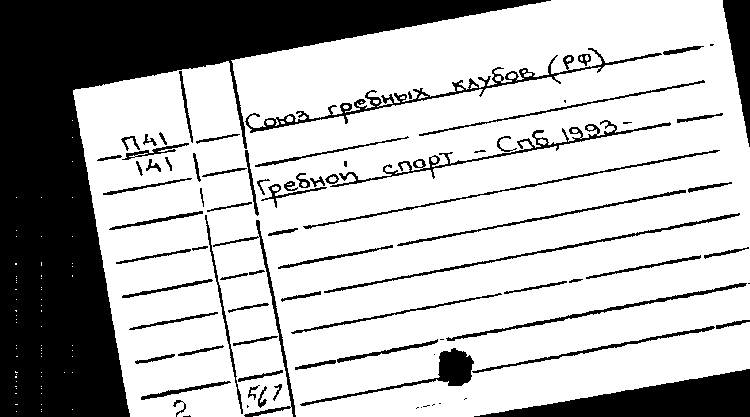 Союз гребных клубов (РФ)
П41
141
Гребной спорт - Спб, 1993-
2
567